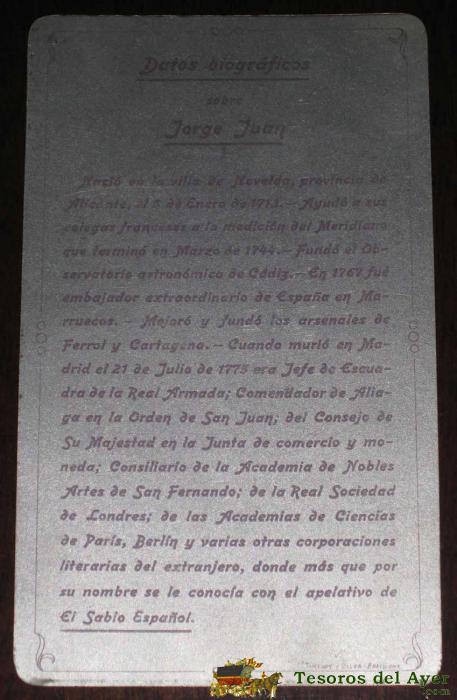 Datos biográficos
sobre
Jorge Juan
Nació en la villa de Novelda, provincia de
Alicante, el 5 de Enero de 1713.— Ayudó a sus
colegas franceses a la medición del Meridiano
que terminó en Marzo de 1744.— Fundó el Ob-
servatorio astronómico de Cádiz.— En 1767 fué
embajador extraordinario de España en Ma-
rruecos. — Mejoró y fundó los arsenales de
Ferrol y Cartagena.— Cuando murió en Ma-
drid el 21 de Julio de 1775 era Jefe de Escua-
dra de la Real Armada; Comendador de Alia-
ga en la Orden de San Juan; del Consejo de
Su Majestad en la Junta de comercio y mo-
neda; Consiliario de la Academia de Nobles
Artes de San Fernando; de la Real Sociedad
de Londres; de las Academias de Ciencias
de París, Berlín y varias otras corporaciones
literarias del extranjero, donde más que por
su nombre se le conocía con el apelativo de
El Sabio Español.
Tesoros del Ayer
.com